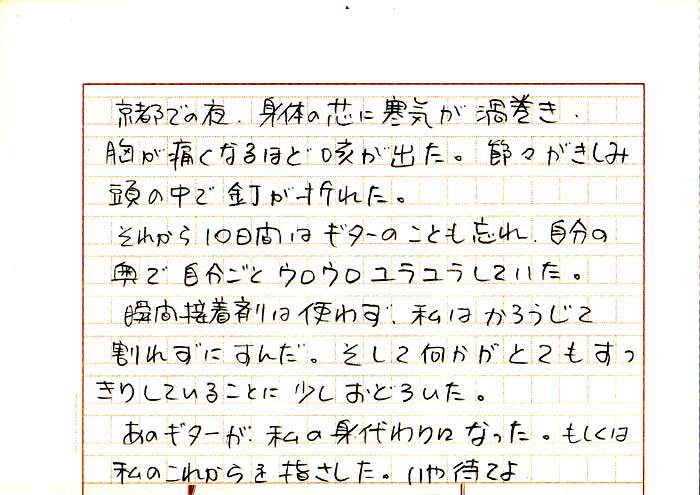 京都での夜、身体の芯に寒気が渦巻き、
胸が痛くなるほど咳が出た。節々がきしみ
頭の中で釘が折れた。
それから10日間はギターのことも忘れ、自分の
奥で自分ごとウロウロユラユラしていた。
瞬間接着剤は使わず、私はかろうじて
割れずにすんだ。そして何かがとてもすっ
きりしていることに少しおどろいた。
あのギターが、私の身代わりになった。もしくは
私のこれからを指さした。いや待てよ